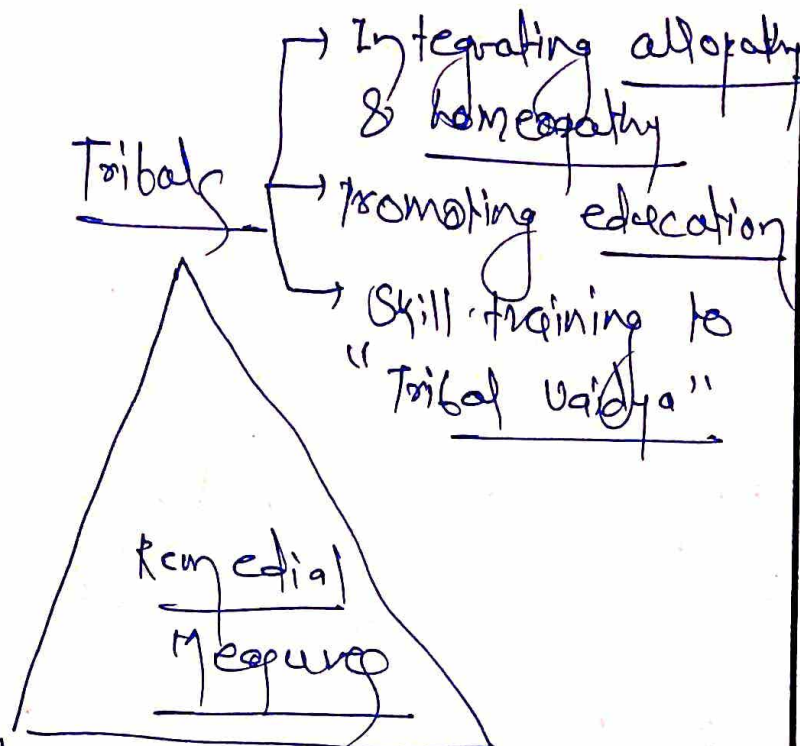 Integrating allopathy
& homeopathy
Tribals
Promoting education
Skill training to
"Tribal Vaidya"
Remedial
Measures